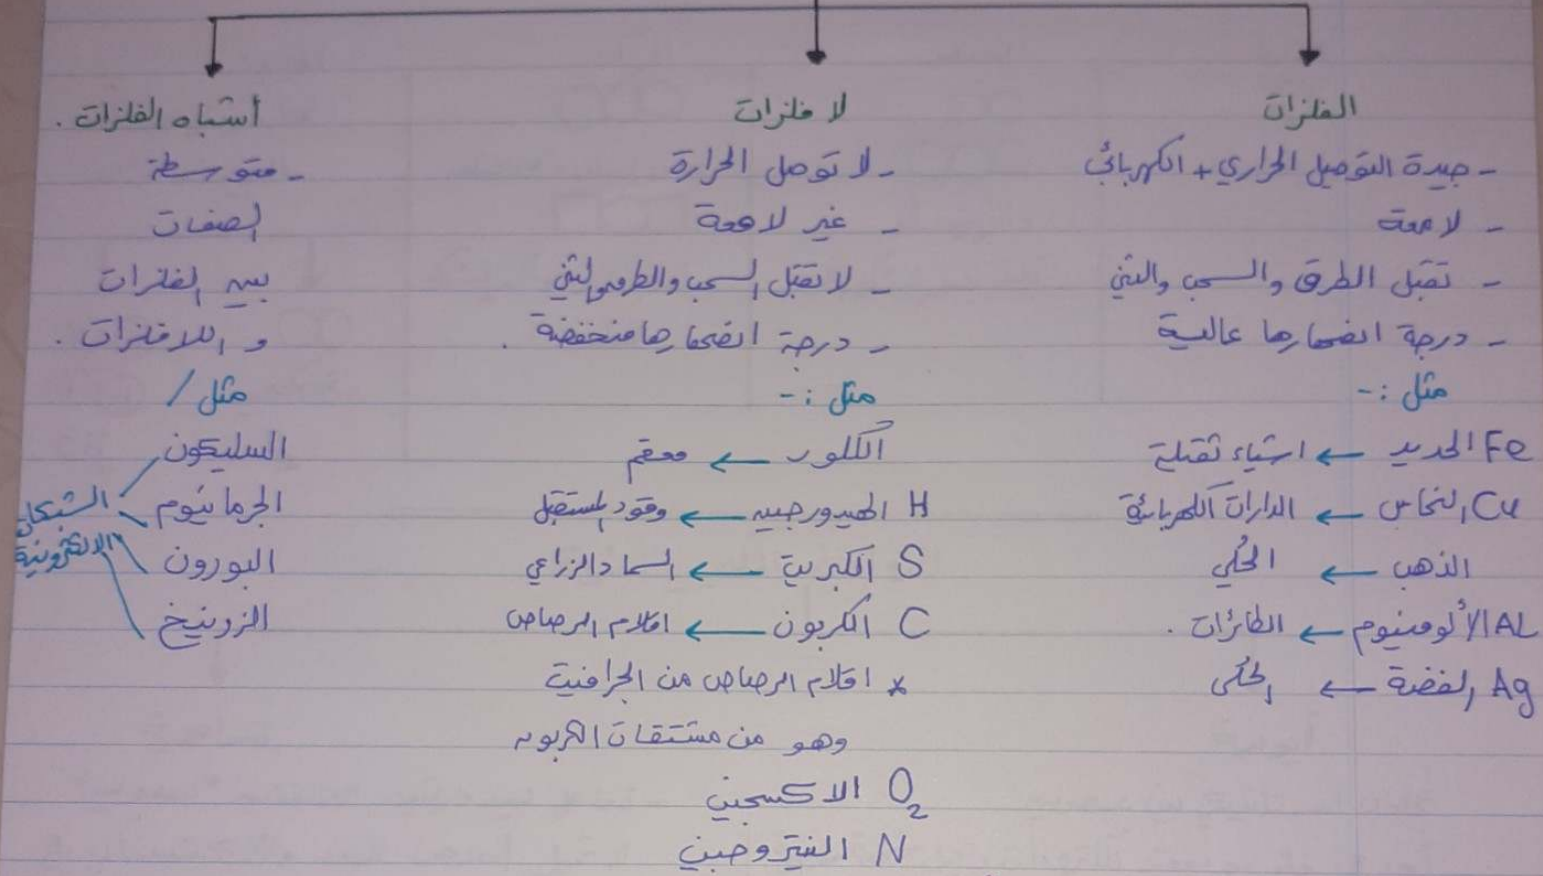 الفلزات
- جيدة التوصيل الحراري + الكهربائي
- لامعة
- تقبل الطرق والسحب والثني
- درجة انصهارها عالية
مثل :-
Fe الحديد ← اشياء ثقيلة
Cu النحاس ← الدارات الكهربائية
الذهب ← الحُلي
AL الألومنيوم ← الطائرات .
Ag الفضة ← الحُلى
لا فلزات
- لا توصل الحرارة
- غير لامعة
- لا تقبل السحب والطرق والثني
- درجة انصهارها منخفضة .
مثل :-
الكلور ← معقم
H الهيدورجين ← وقود المستقبل
S الكبريت ← السماد الزراعي
C الكربون ← اقلام الرصاص
* اقلام الرصاص من الجرافيت
وهو من مشتقات الكربون
O2 الاكسجين
N النيتروجين
أشباه الفلزات .
- متوسطة
الصفات
بين الفلزات
و اللافلزات .
مثل /
السليكون
الجرمانيوم
البورون
الزرنيخ
الالكترونية